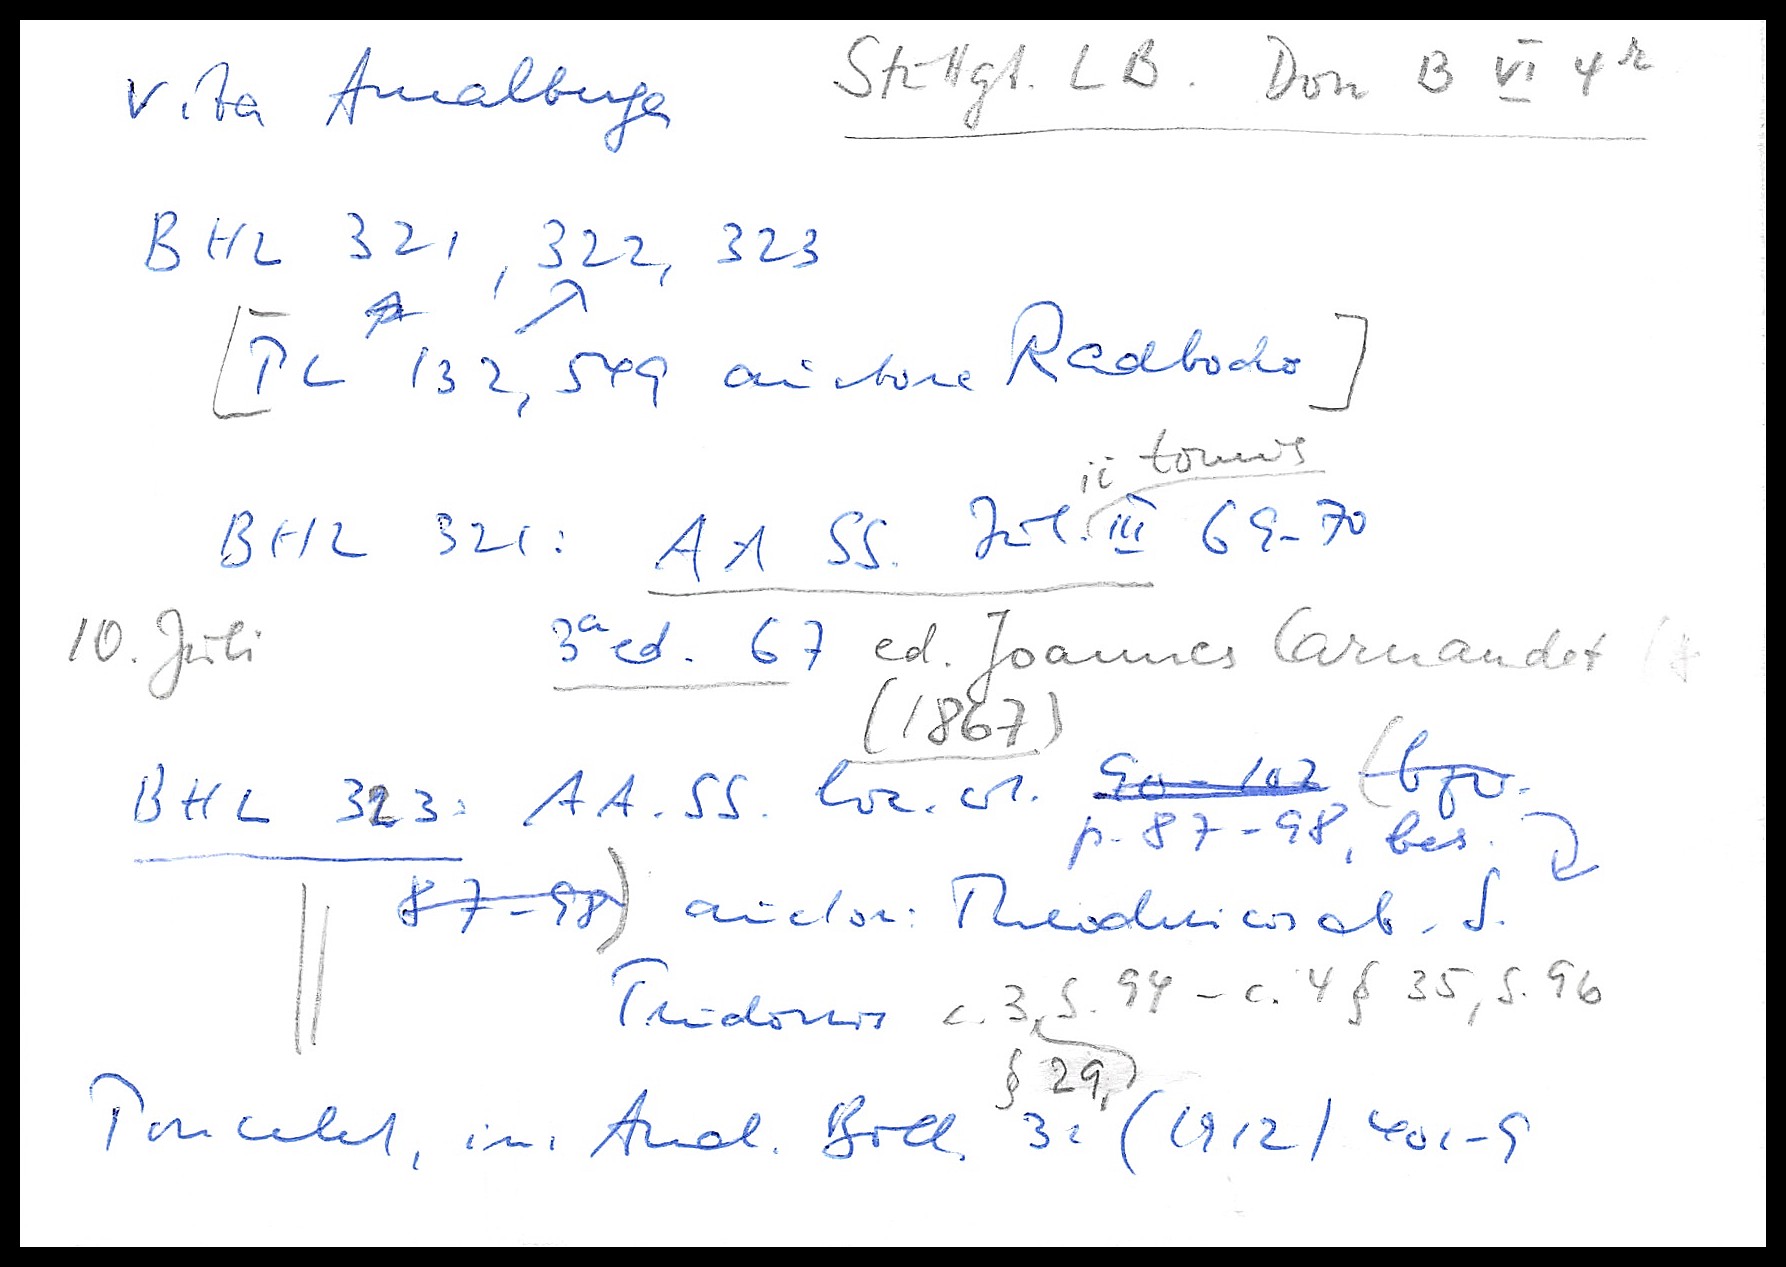 Vita Amalberga Stuttgt. LB. Don B VI 4r
BHL 321, 322, 323
[PL 132, 549 auctore Radbodo]
ii tomus
BHL 321: AA SS. Jul. III 69-70
10. Juli 3a ed. 67 ed. Joannes Carnandet
(1867)
BHL 323: AA.SS. loc. cit. 90-102 (bzw.
p. 87-98, bes.
87-98) auctor: Theodricus ab. S.
Trudonis c. 3, S. 94 - c. 4 § 35, S. 96
§ 29,
Poncelet, in: Anal. Boll. 31 (1912) 401-9